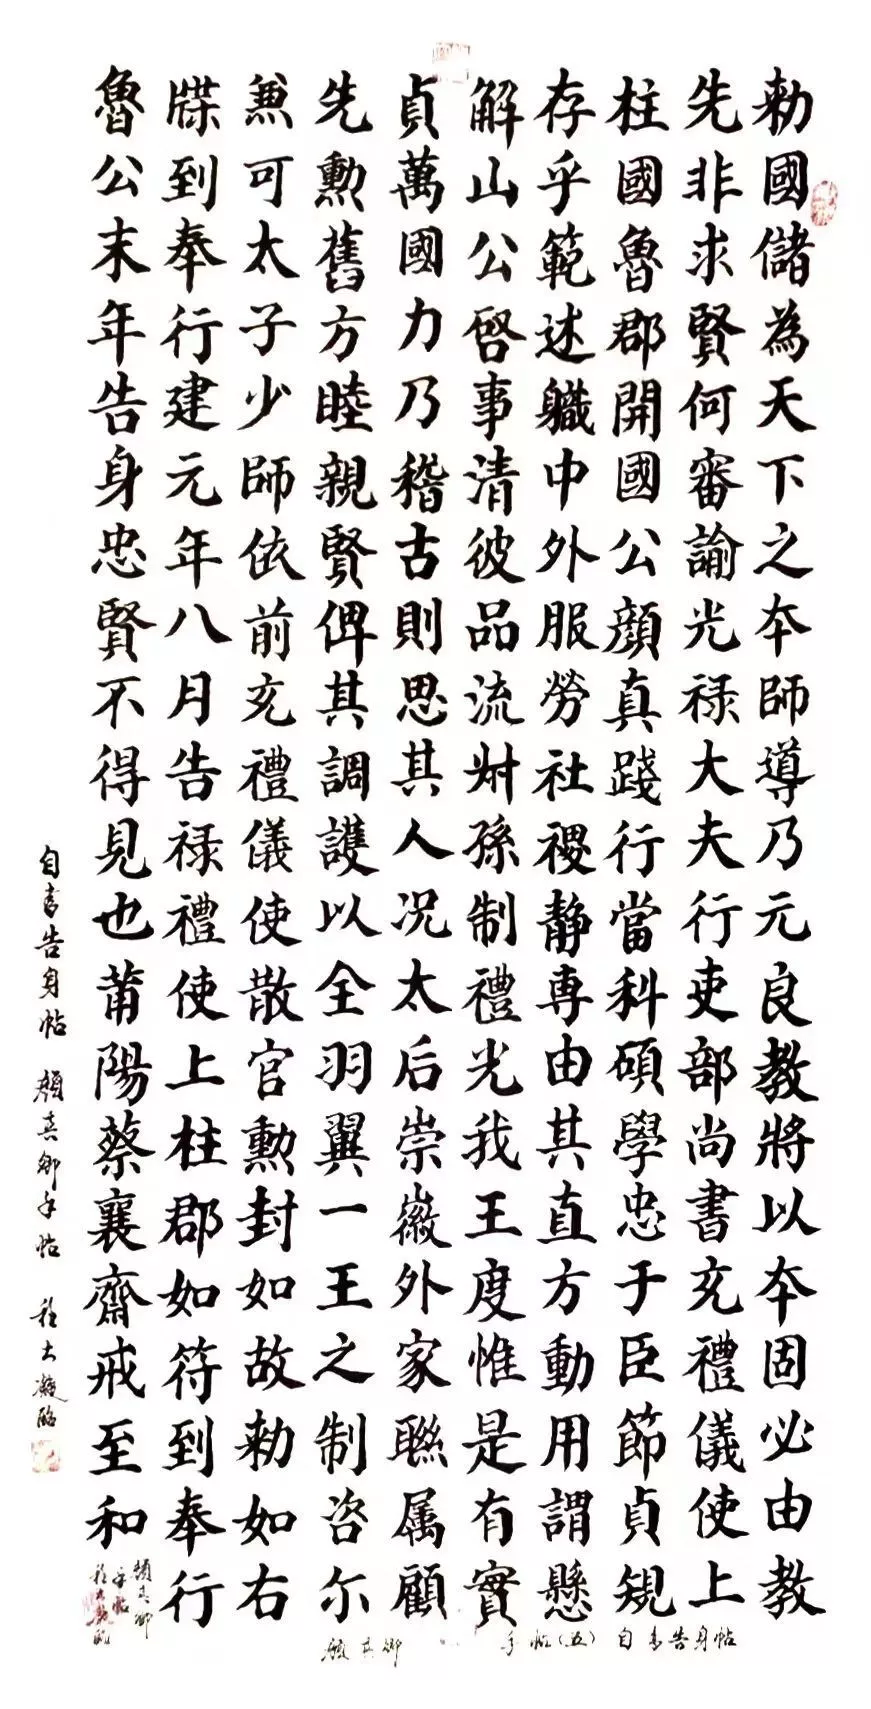 勅國儲為天下之本師導乃元良教將以本固必由教
先非求賢何審諭光禄大夫行吏部尚書充禮儀使上
柱國魯郡開國公顏真踐行當科碩學忠于臣節貞規
存乎範述職中外服勞社稷静專由其直方動用謂懸
解山公啓事清彼品流叔孫制禮光我王度惟是有實
貞萬國力乃稽古則思其人况太后崇徽外家聯属顧
先勲舊方睦親賢俾其調護以全羽翼一王之制咨尔
兼可太子少師依前充禮儀使散官勲封如故勅如右
牒到奉行建元年八月告禄禮使上柱郡如符到奉行
魯公末年告身忠賢不得見也莆陽蔡襄齋戒至和
自書告身帖 顏真卿手帖 程大凝臨
顏真卿
手帖
顏真卿 手帖(五) 自書告身帖